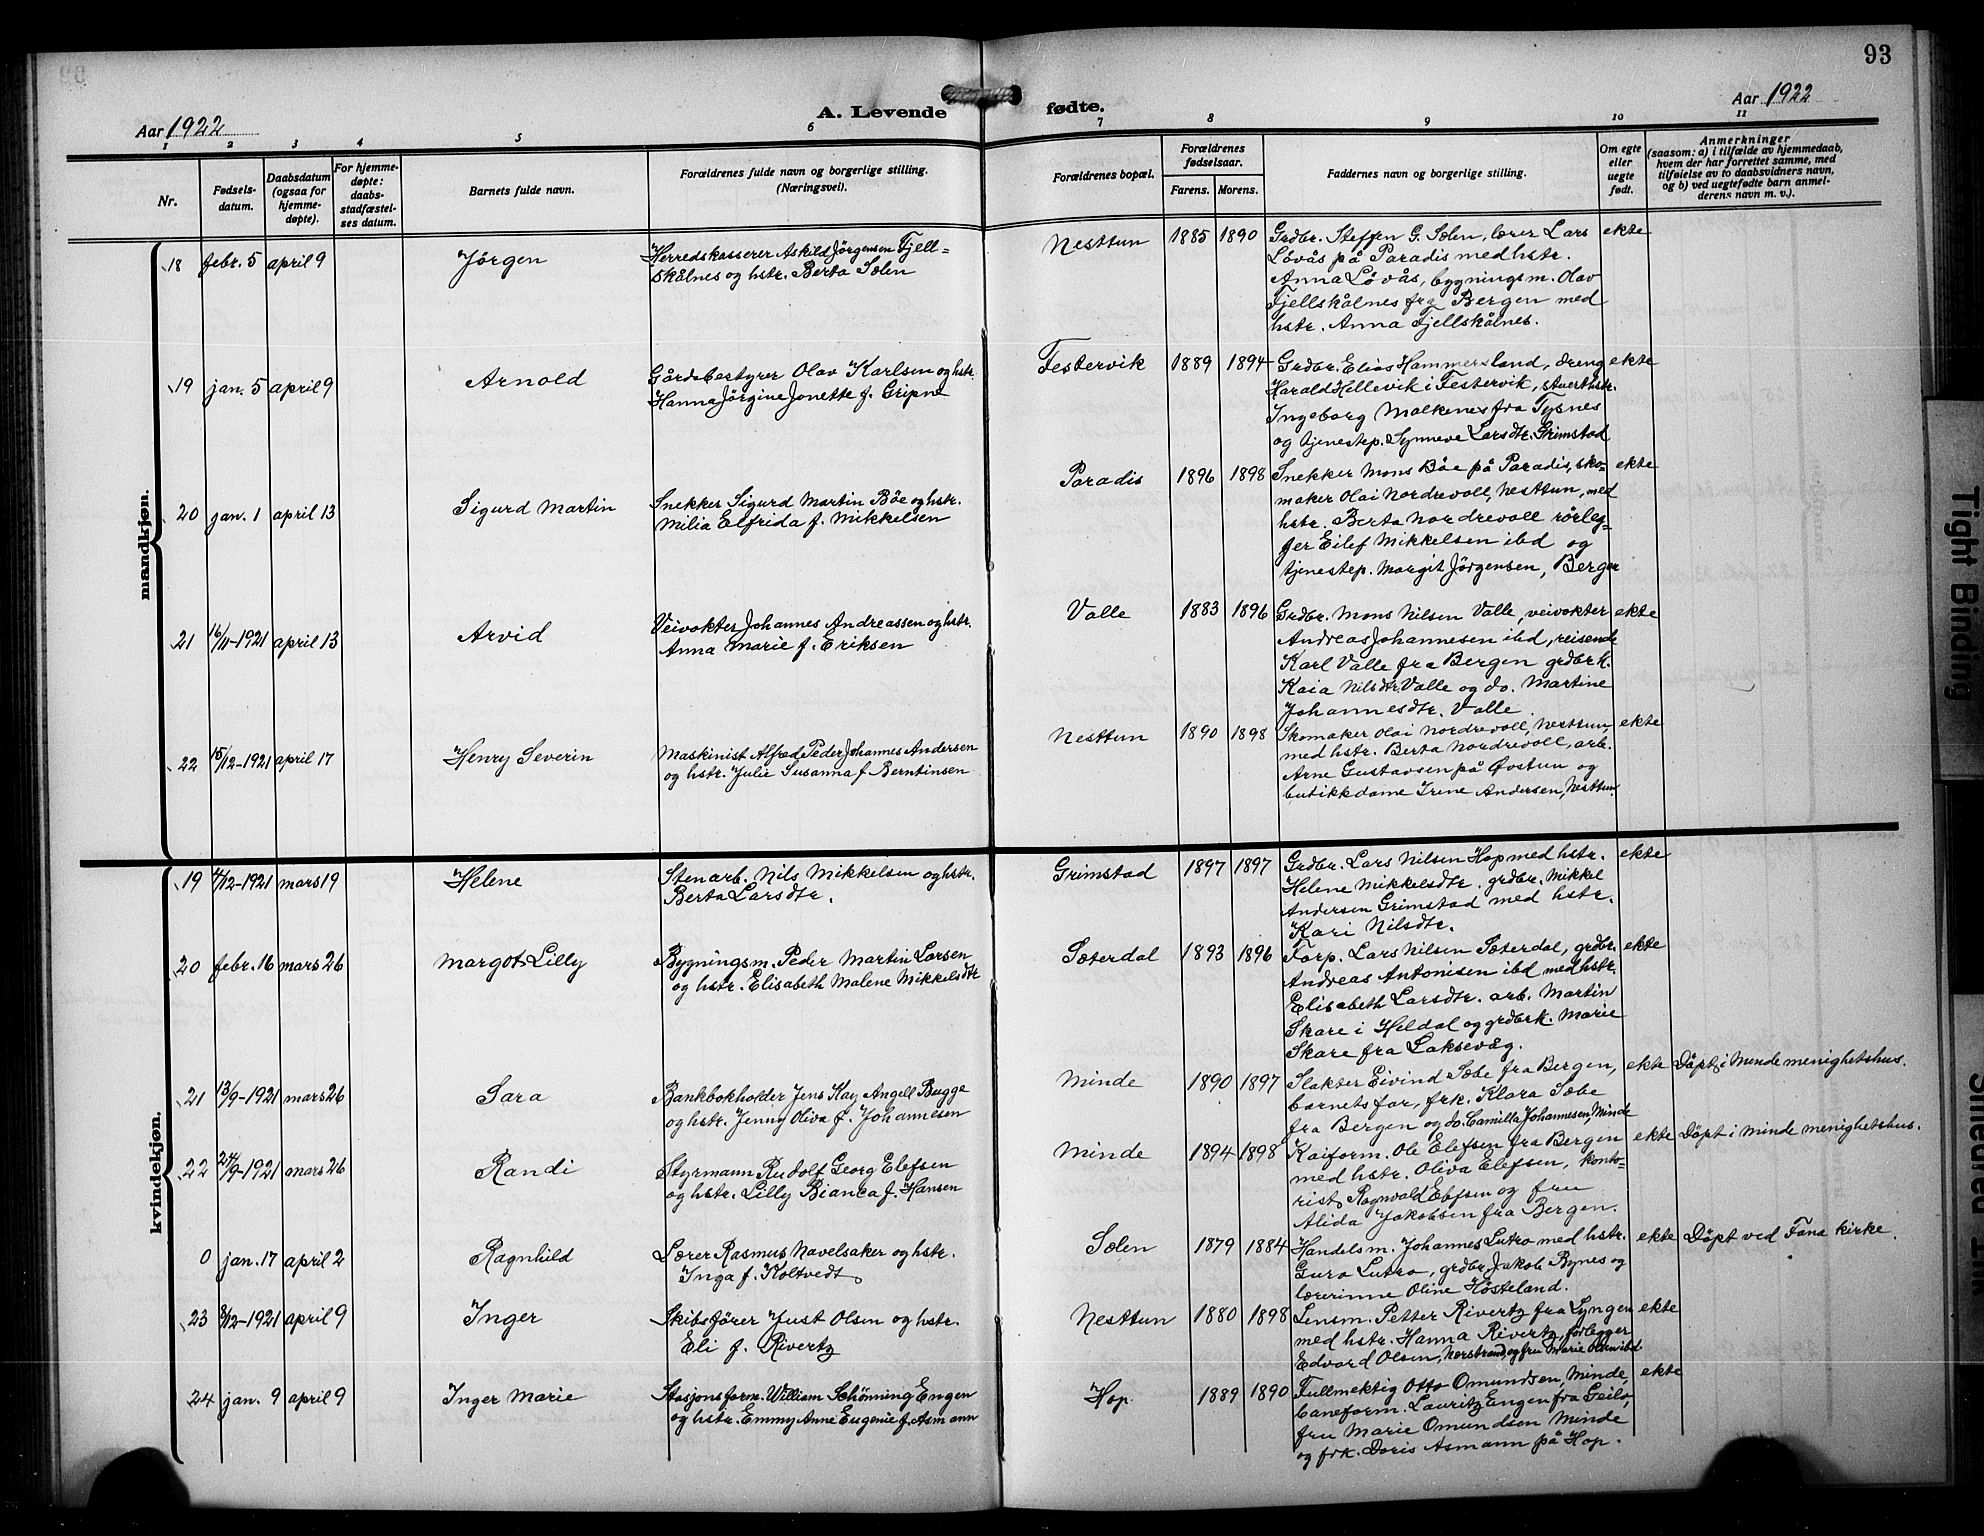 93
Aar 1922
A. Levende fødte.
Aar 1922
1 2 3 4 5 6 7 8 9 10 11
Nr.
Fødsels-
datum.
Daabsdatum
(ogsaa for
hjemme-
døpte).
For hjemme-
døpte:
daabs-
stadfæstel-
ses datum.
Barnets fulde navn.
Forældrenes fulde navn og borgerlige stilling.
(Næringsvei).
Forældrenes bopæl.
Forældrenes
fødselsaar.
Farens. Morens.
Faddernes navn og borgerlige stilling.
Om egte
eller
uegte
født.
Anmerkninger
(saasom: a) i tilfælde av hjemmedaab,
hvem der har forrettet samme, med
tilføielse av to daabsvidners navn,
og b) ved uegtefødte barn anmel-
derens navn m. v.).
mandkjøn.
18 febr. 5 april 9 Jørgen
Herredskasserer Askild Jørgensen Fjell-
skålnes og hstr. Berta Sælen
Nesttun 1885 1890
Grdbr. Steffen G. Sælen, lærer Lars
Løvås på Paradis med hstr.
Anna Løvås, bygningsm. Olav
Fjellskålnes fra Bergen med
hstr. Anna Fjellskålnes.
ekte
19 jan. 5 april 9 Arnold
Gårdsbestyrer Olav Karlsen og hstr.
Hanna Jørgine Jonette f. Gripne
Festervik 1889 1894
Grdbr. Elias Hammersland, dreng
Harald Hellevik i Festervik, stuerthstr.
Ingeborg Malkenes fra Tysnes
og tjenestep. Synneve Larsdtr. Grimstad
ekte
20 jan. 1 april 13 Sigurd Martin
Snekker Sigurd Martin Bøe og hstr.
Milia Elfrida f. Mikkelsen
Paradis 1896 1898
Snekker Mons Bøe på Paradis, sko-
maker Olai Nordrevoll, Nesttun, med
hstr. Berta Nordrevoll rørleg-
ger Eilef Mikkelsen ibd og
tjenestep. Margit Jørgensen, Bergen
ekte
21 16/11-1921 april 13 Arvid
Veivokter Johannes Andreassen og hstr.
Anna Marie f. Eriksen
Valle 1883 1896
Grdbr. Mons Nilsen Valle, veivokter
Andreas Johannesen ibd, reisende
Karl Valle fra Bergen grdbrk.
Kaia Nilsdtr. Valle og do. Martine
Johannesdtr. Valle
ekte
22 15/12-1921 april 17 Henry Severin
Maskinist Alfred Peder Johannes Andersen
og hstr. Julie Susanna f. Berntinsen
Nesttun 1890 1898
Skomaker Olai Nordrevoll, Nesttun,
med hstr. Berta Nordrevoll, arb.
Arne Gustavsen på Øvstun og
butikkdame Irene Andersen, Nesttun
ekte
kvindekjøn.
19 4/12-1921 mars 19 Helene
Stenarb. Nils Mikkelsen og hstr.
Berta Larsdtr.
Grimstad 1897 1897
Grdbr. Lars Nilsen Hop med hstr.
Helene Mikkelsdtr. grdbr. Mikkel
Andersen Grimstad med hstr.
Kari Nilsdtr.
ekte
20 febr. 16 mars 26 Margot Lilly
Bygningsm. Peder Martin Larsen
og hstr. Elisabeth Malene Mikkelsdtr
Sæterdal 1893 1896
Forp. Lars Nilsen Sæterdal, grdbr.
Andreas Antonisen ibd med hstr.
Elisabeth Larsdtr. arb. Martin
Skare i Heldal og grdbrk. Marie
Skare fra Laksevåg.
ekte
21 13/9-1921 mars 26 Sara
Bankbokholder Jens Kay Angell Bugge
og hstr. Jenny Oliva f. Johannesen
Minde 1890 1897
Slakter Eivind Sæbe fra Bergen,
barnets far, frk. Klara Sæbe
fra Bergen og do. Camilla Johannesen, Minde
ekte Døpt i Minde menighetshus
22 24/9-1921 mars 26 Randi
Styrmann Rudolf Georg Elefsen
og hstr. Lilly Bianca f. Hansen
Minde 1894 1898
Kaiform. Ole Elefsen fra Bergen
med hstr. Oliva Elefsen, konto-
rist Ragnvald Elefsen og fru
Alida Jakobsen fra Bergen.
ekte Døpt i Minde menighetshus.
0 jan. 17 april 2 Ragnhild
Lærer Rasmus Navelsaker og hstr.
Inga f. Koltvedt
Sælen 1879 1884
Handelsm. Johannes Lutro med hstr.
Guro Lutro, grdbr. Jakob Bynes og
lærerinne Oline Høsteland.
ekte Døpt ved Fana kirke.
23 8/12-1921 april 9 Inger
Skibsfører Just Olsen og hstr.
Eli f. Rivertz
Nesttun 1880 1898
Lensm. Petter Rivertz fra Lyngen
med hstr. Hanna Rivertz, forlegger
Edvard Olsen, Nærstrand, og fru Marie Olsen ibd
ekte
24 jan. 9 april 9 Inger Marie
Stasjonsform. William Schønning Engen
og hstr. Emmy Anne Eugenie f. Asmann
Hop 1889 1890
Fullmektig Otto Omundsen, Minde,
baneform. Lauritz Engen fra Geilo,
fru Marie Omundsen Minde
og frk. Doris Asmann på Hop.
ekte
Tight Binding